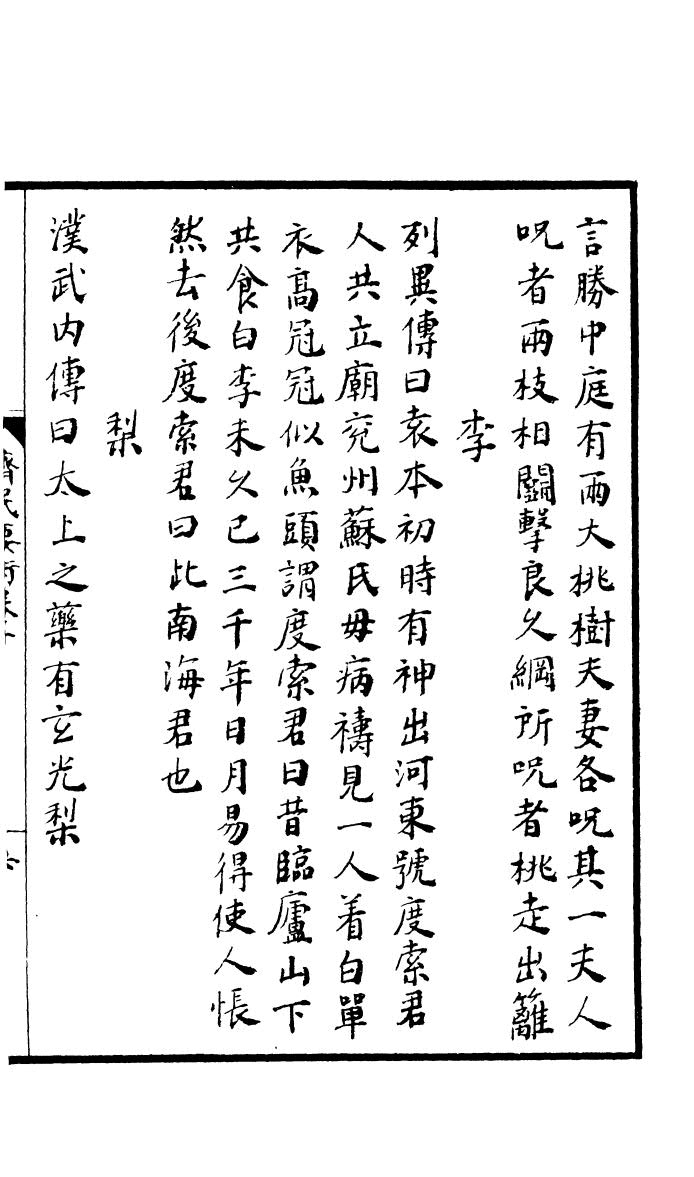 言勝中庭有兩大桃樹夫妻各呪其一夫人
呪者兩枝相鬭擊良久綱所呪者桃走出籬
李
列異傳曰袁本初時有神出河東號度索君
人共立廟兖州蘇氏毋病禱見一人着白單
衣高冠冠似魚頭謂度索君曰昔臨廬山下
共食白李未久已三千年日月易得使人悵
然去後度索君曰此南海君也
梨
漢武内傳曰太上之藥有玄光梨
齊民要術卷十